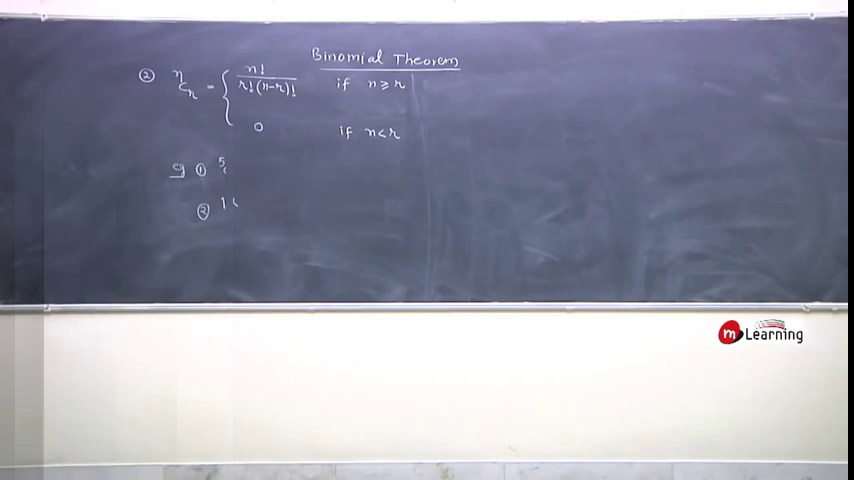 Binomial Theorem
② ⁿCᵣ = { n! / r!(n-r)! if n ≥ r
0 if n < r
eg ① 5
②
mLearning